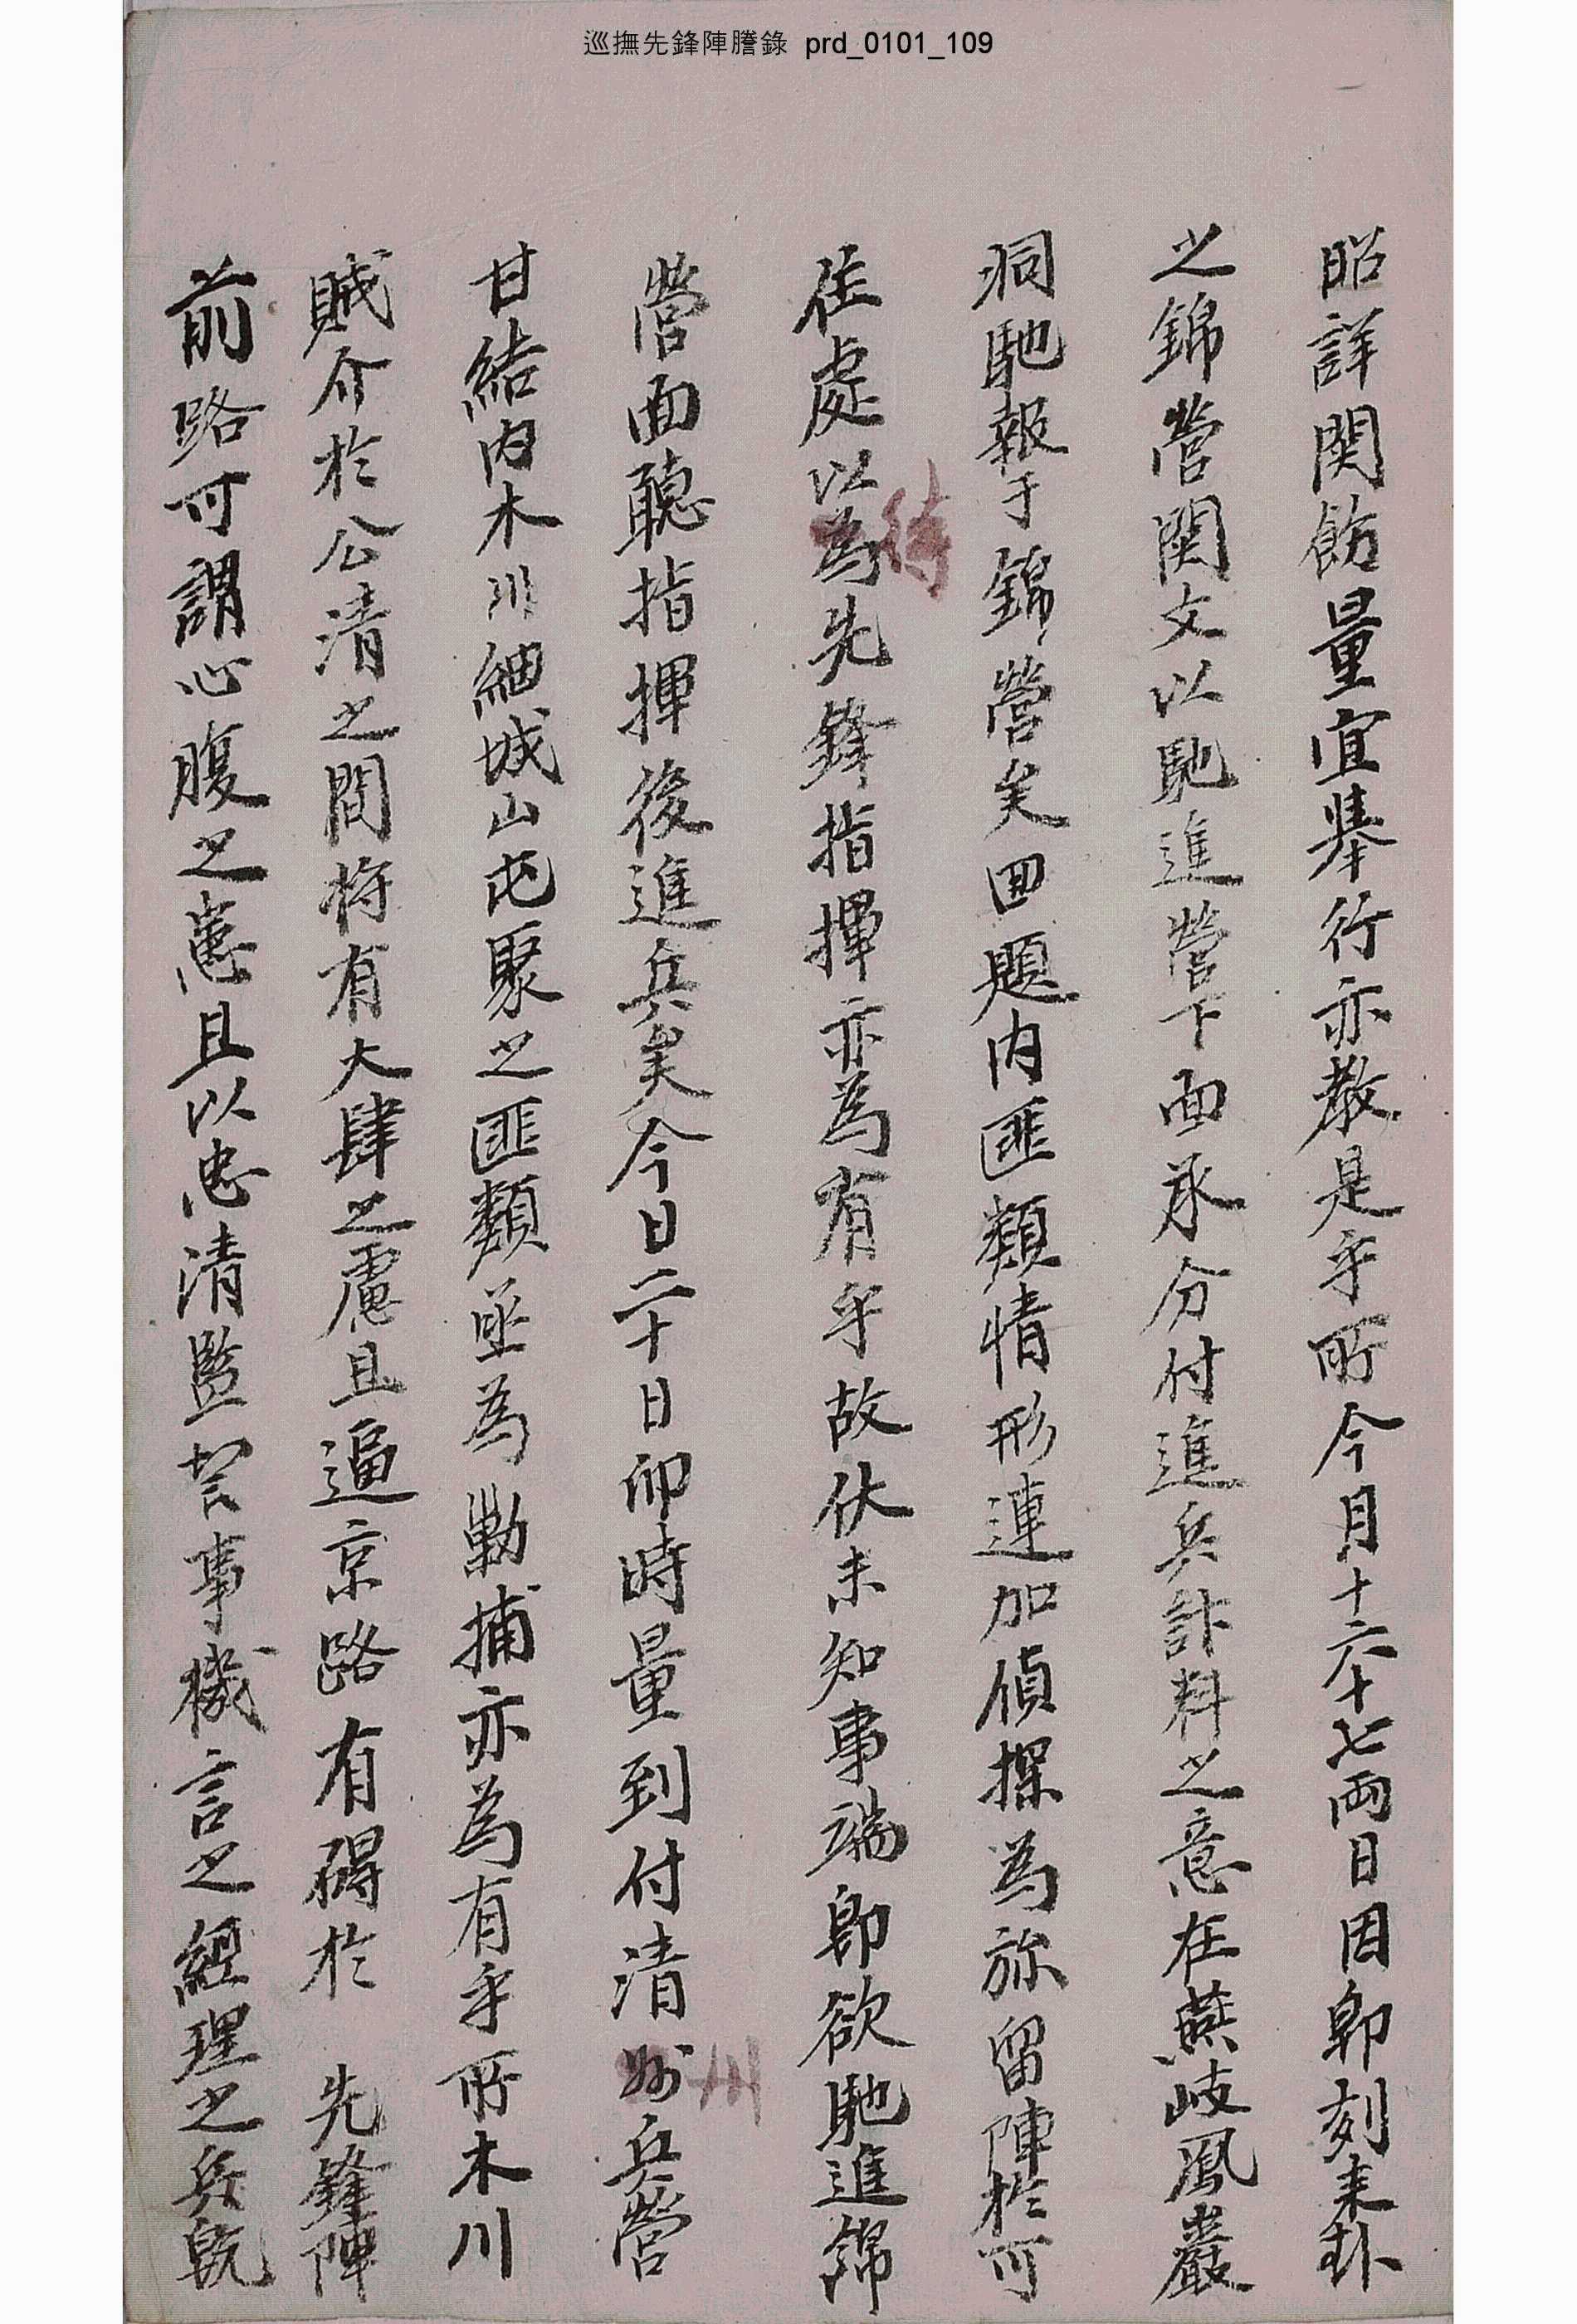 巡撫先鋒陣謄錄 prd_0101_109
昭詳関飭量宜擧行亦教是乎所今月十六十七両日因卽刻来到
之錦營関文以馳進營下面承分付進兵計料之意在燕岐鳳巖
洞馳報于錦營矣回題内匪類情形連加偵探爲旀留陣於可
住處以爲先鋒指揮亦爲有乎故伏未知事端卽欲馳進錦
待
營面聽指揮後進兵矣今日二十日卯時量到付清州兵營
州
甘結内木川細城山屯聚之匪類亟爲勦捕亦爲有乎所木川
賊介於公清之間将有大肆之慮且逼京路有碍於 先鋒陣
前路可謂心腹之患且以忠清監營事機言之經理之兵既